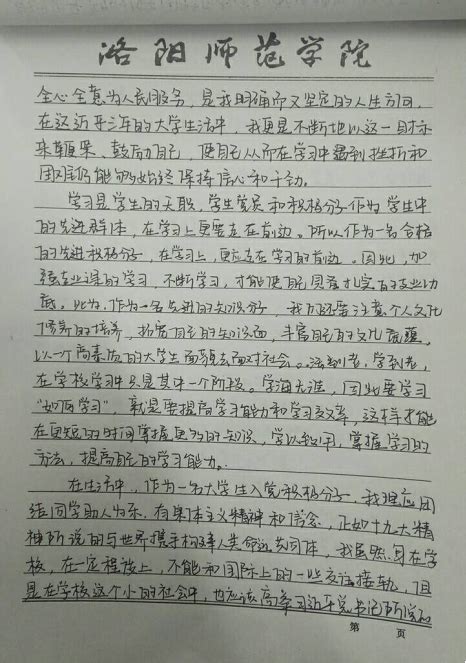 洛阳师范学院
全心全意为人民服务，是我明确而又坚定的人生方向，
在这近三年的大学生活中，我更是不断地以这一目标
来鞭策、鼓励自己，使自己从而在学习中遇到挫折和
困难仍能够始终保持信心和干劲。
学习是学生的天职，学生党员和积极分子作为学生中
的先进群体，在学习上更要走在前边。所以作为一名合格
的先进积极分子，在学习上，更应走在学习的前边。因此，加
强专业课的学习，不断学习，才能使自己具有扎实的专业功
底。此外，作为一名先进的知识分子，我们还要注意个人文化
修养的培养，拓宽自己的知识面，丰富自己的文化底蕴，
以一个高素质的大学生面貌去面对社会。活到老，学到老，
在学校学习中只是其中一个阶段。学海无涯，因此要学习
“如何学习”，就是要提高学习能力和学习效率，这样才能
在更短的时间掌握更多的知识，学以致用，掌握学习的
方法，提高自己的学习能力。
在生活中，作为一名大学生入党积极分子，我理应团
结同学助人为乐，有集体主义精神和信念，正如十九大精
神所说的与世界携手构建人类命运共同体，我虽然身在学
校，在一定程度上，不能和国际上的一些交往接轨，但
是在学校这个小的社会中，也应该高举习近平总书记所说的
第 页